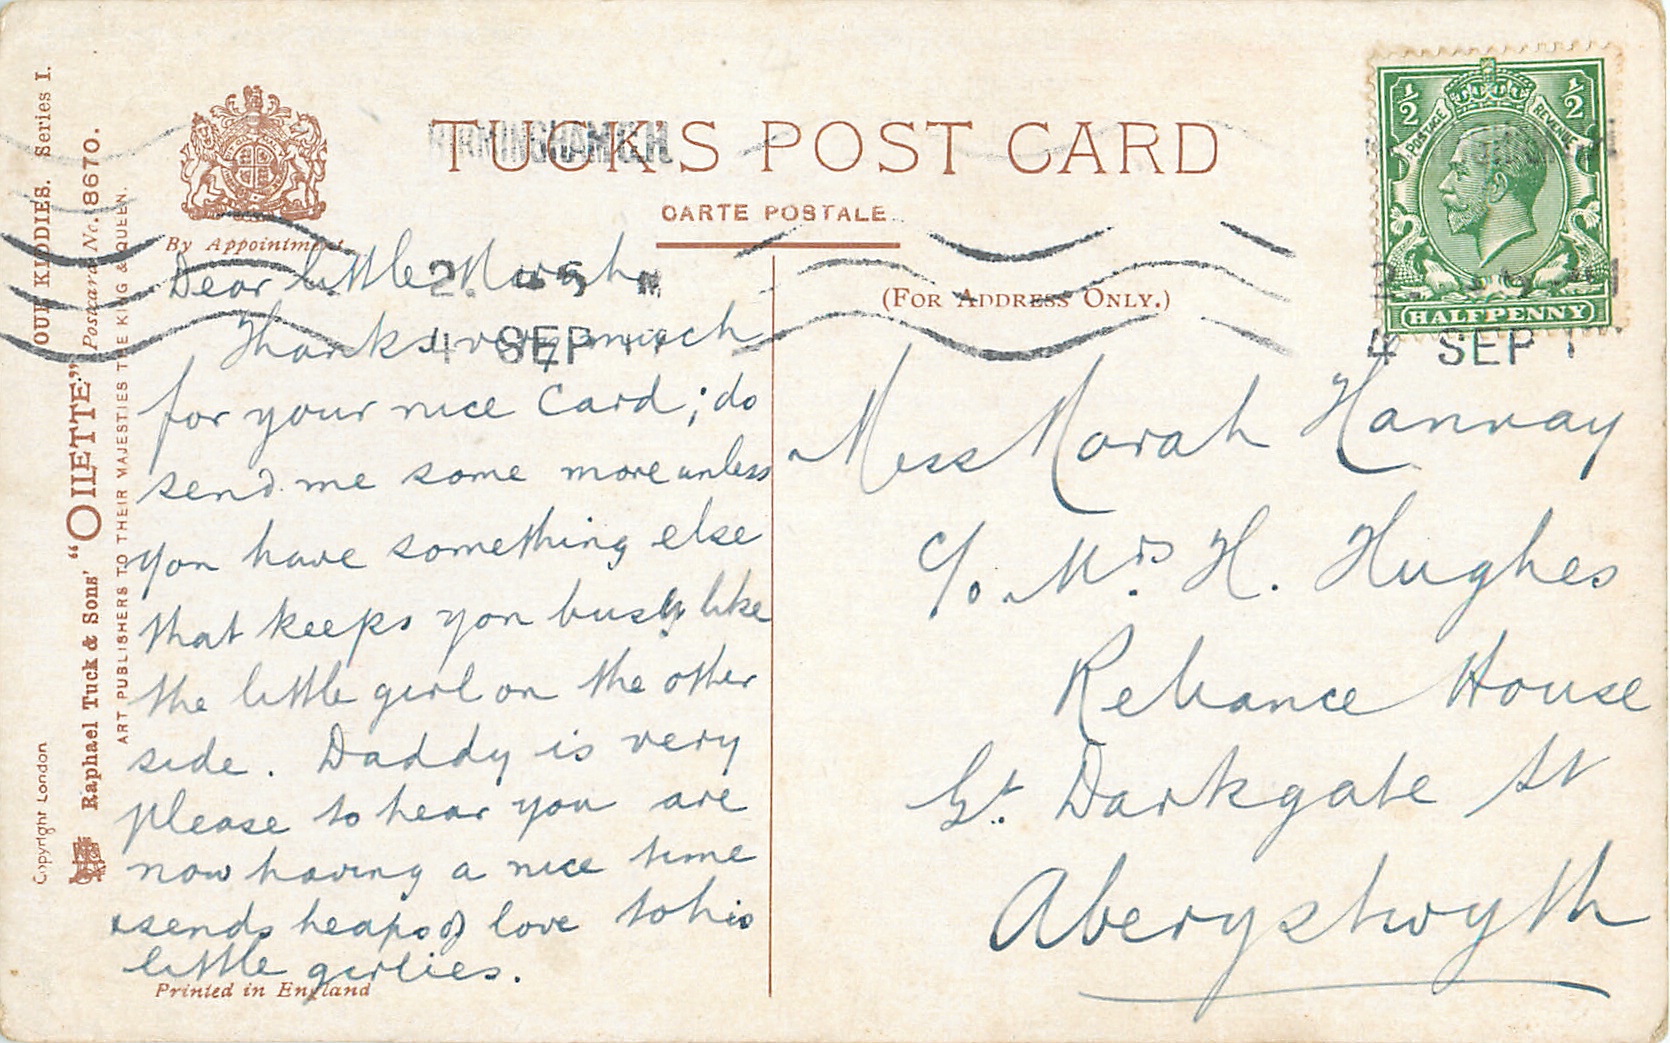 TUCK'S POST CARD
CARTE POSTALE
(FOR ADDRESS ONLY.)
By Appointment
OUR KIDDIES. Series I.
Postcard No. 8670.
Raphael Tuck & Sons' "OILETTE"
ART PUBLISHERS TO THEIR MAJESTIES THE KING & QUEEN.
Copyright London
Printed in England
BIRMINGHAM
2. 45 PM
4 SEP
½ ½
POSTAGE REVENUE
HALFPENNY
4 SEP
Dear little Norah
Thanks very much
for your nice Card; do
send me some more unless
you have something else
that keeps you busy like
the little girl on the other
side. Daddy is very
please to hear you are
now having a nice time
& sends heaps of love to his
little girlies.
Miss Norah Hannay
c/o Mrs H. Hughes
Reliance House
Gt. Darkgate St
Aberystwyth